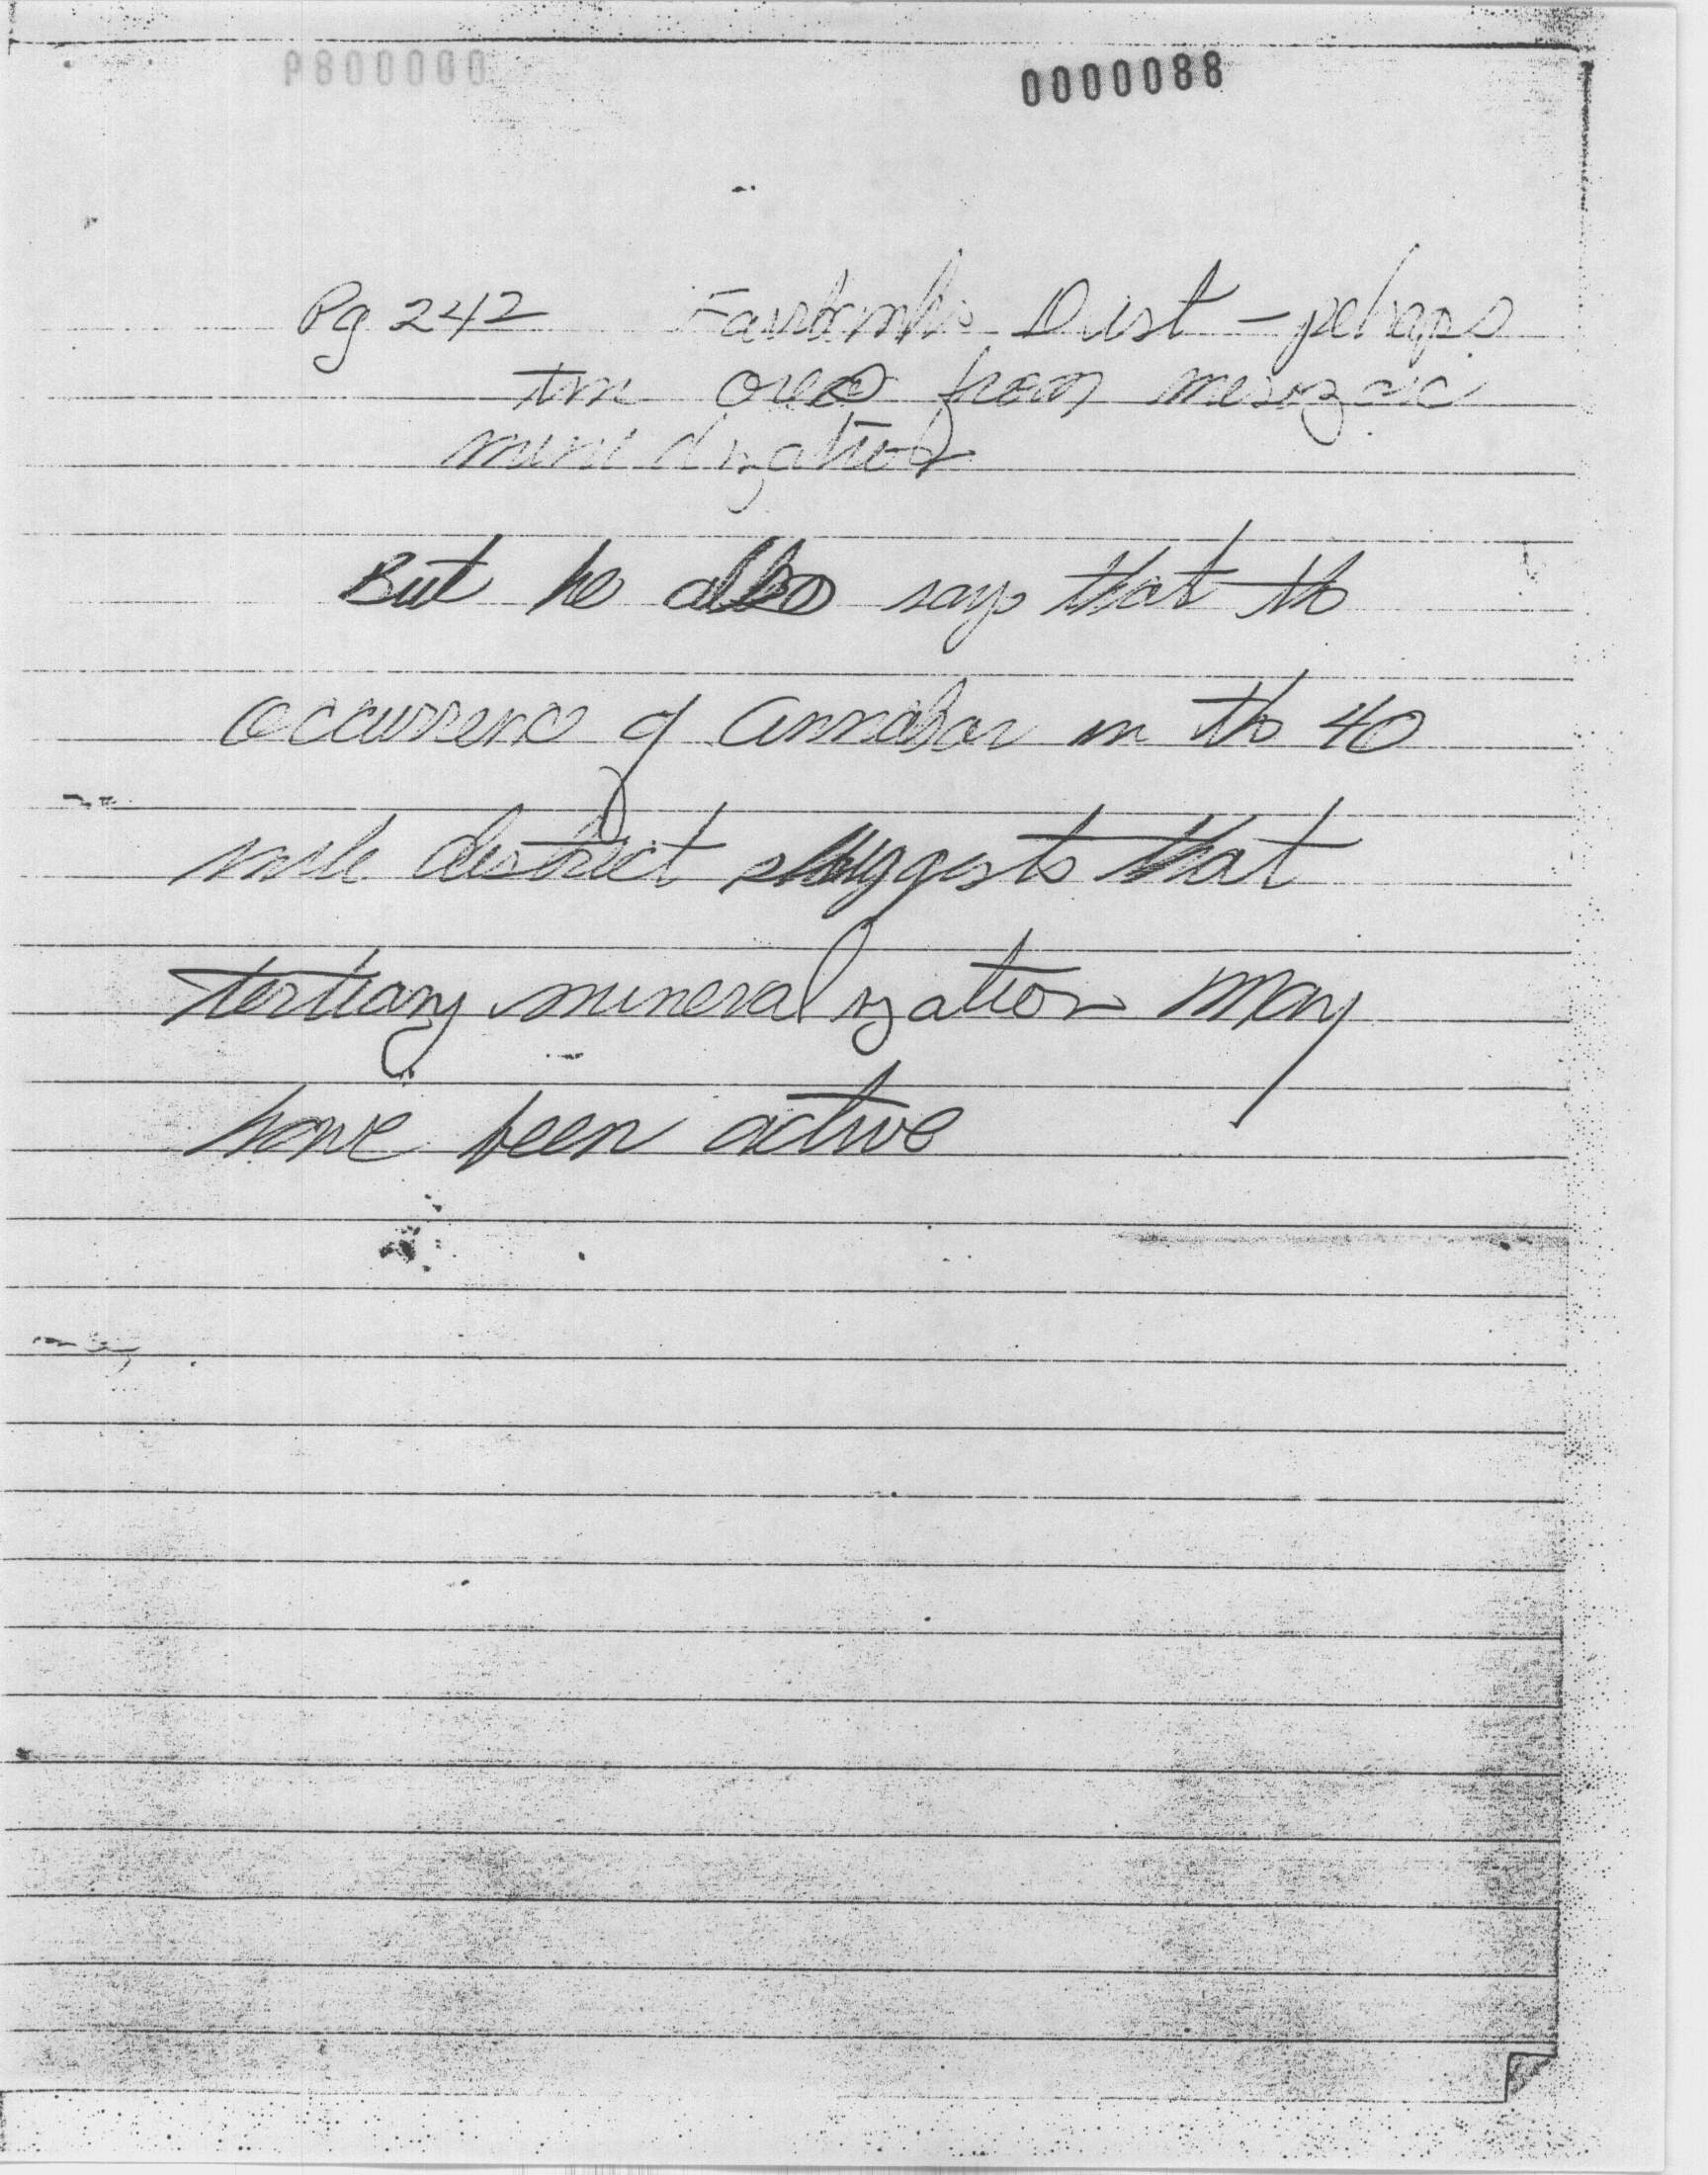 P800000 0000088
Pg 242 Fairbanks Dist - pehaps
tin ores from mesozoic
mineralization
But he also says that the
occurrence of Cinnabar in the 40
mile district suggests that
tertiary mineralization may
have been active